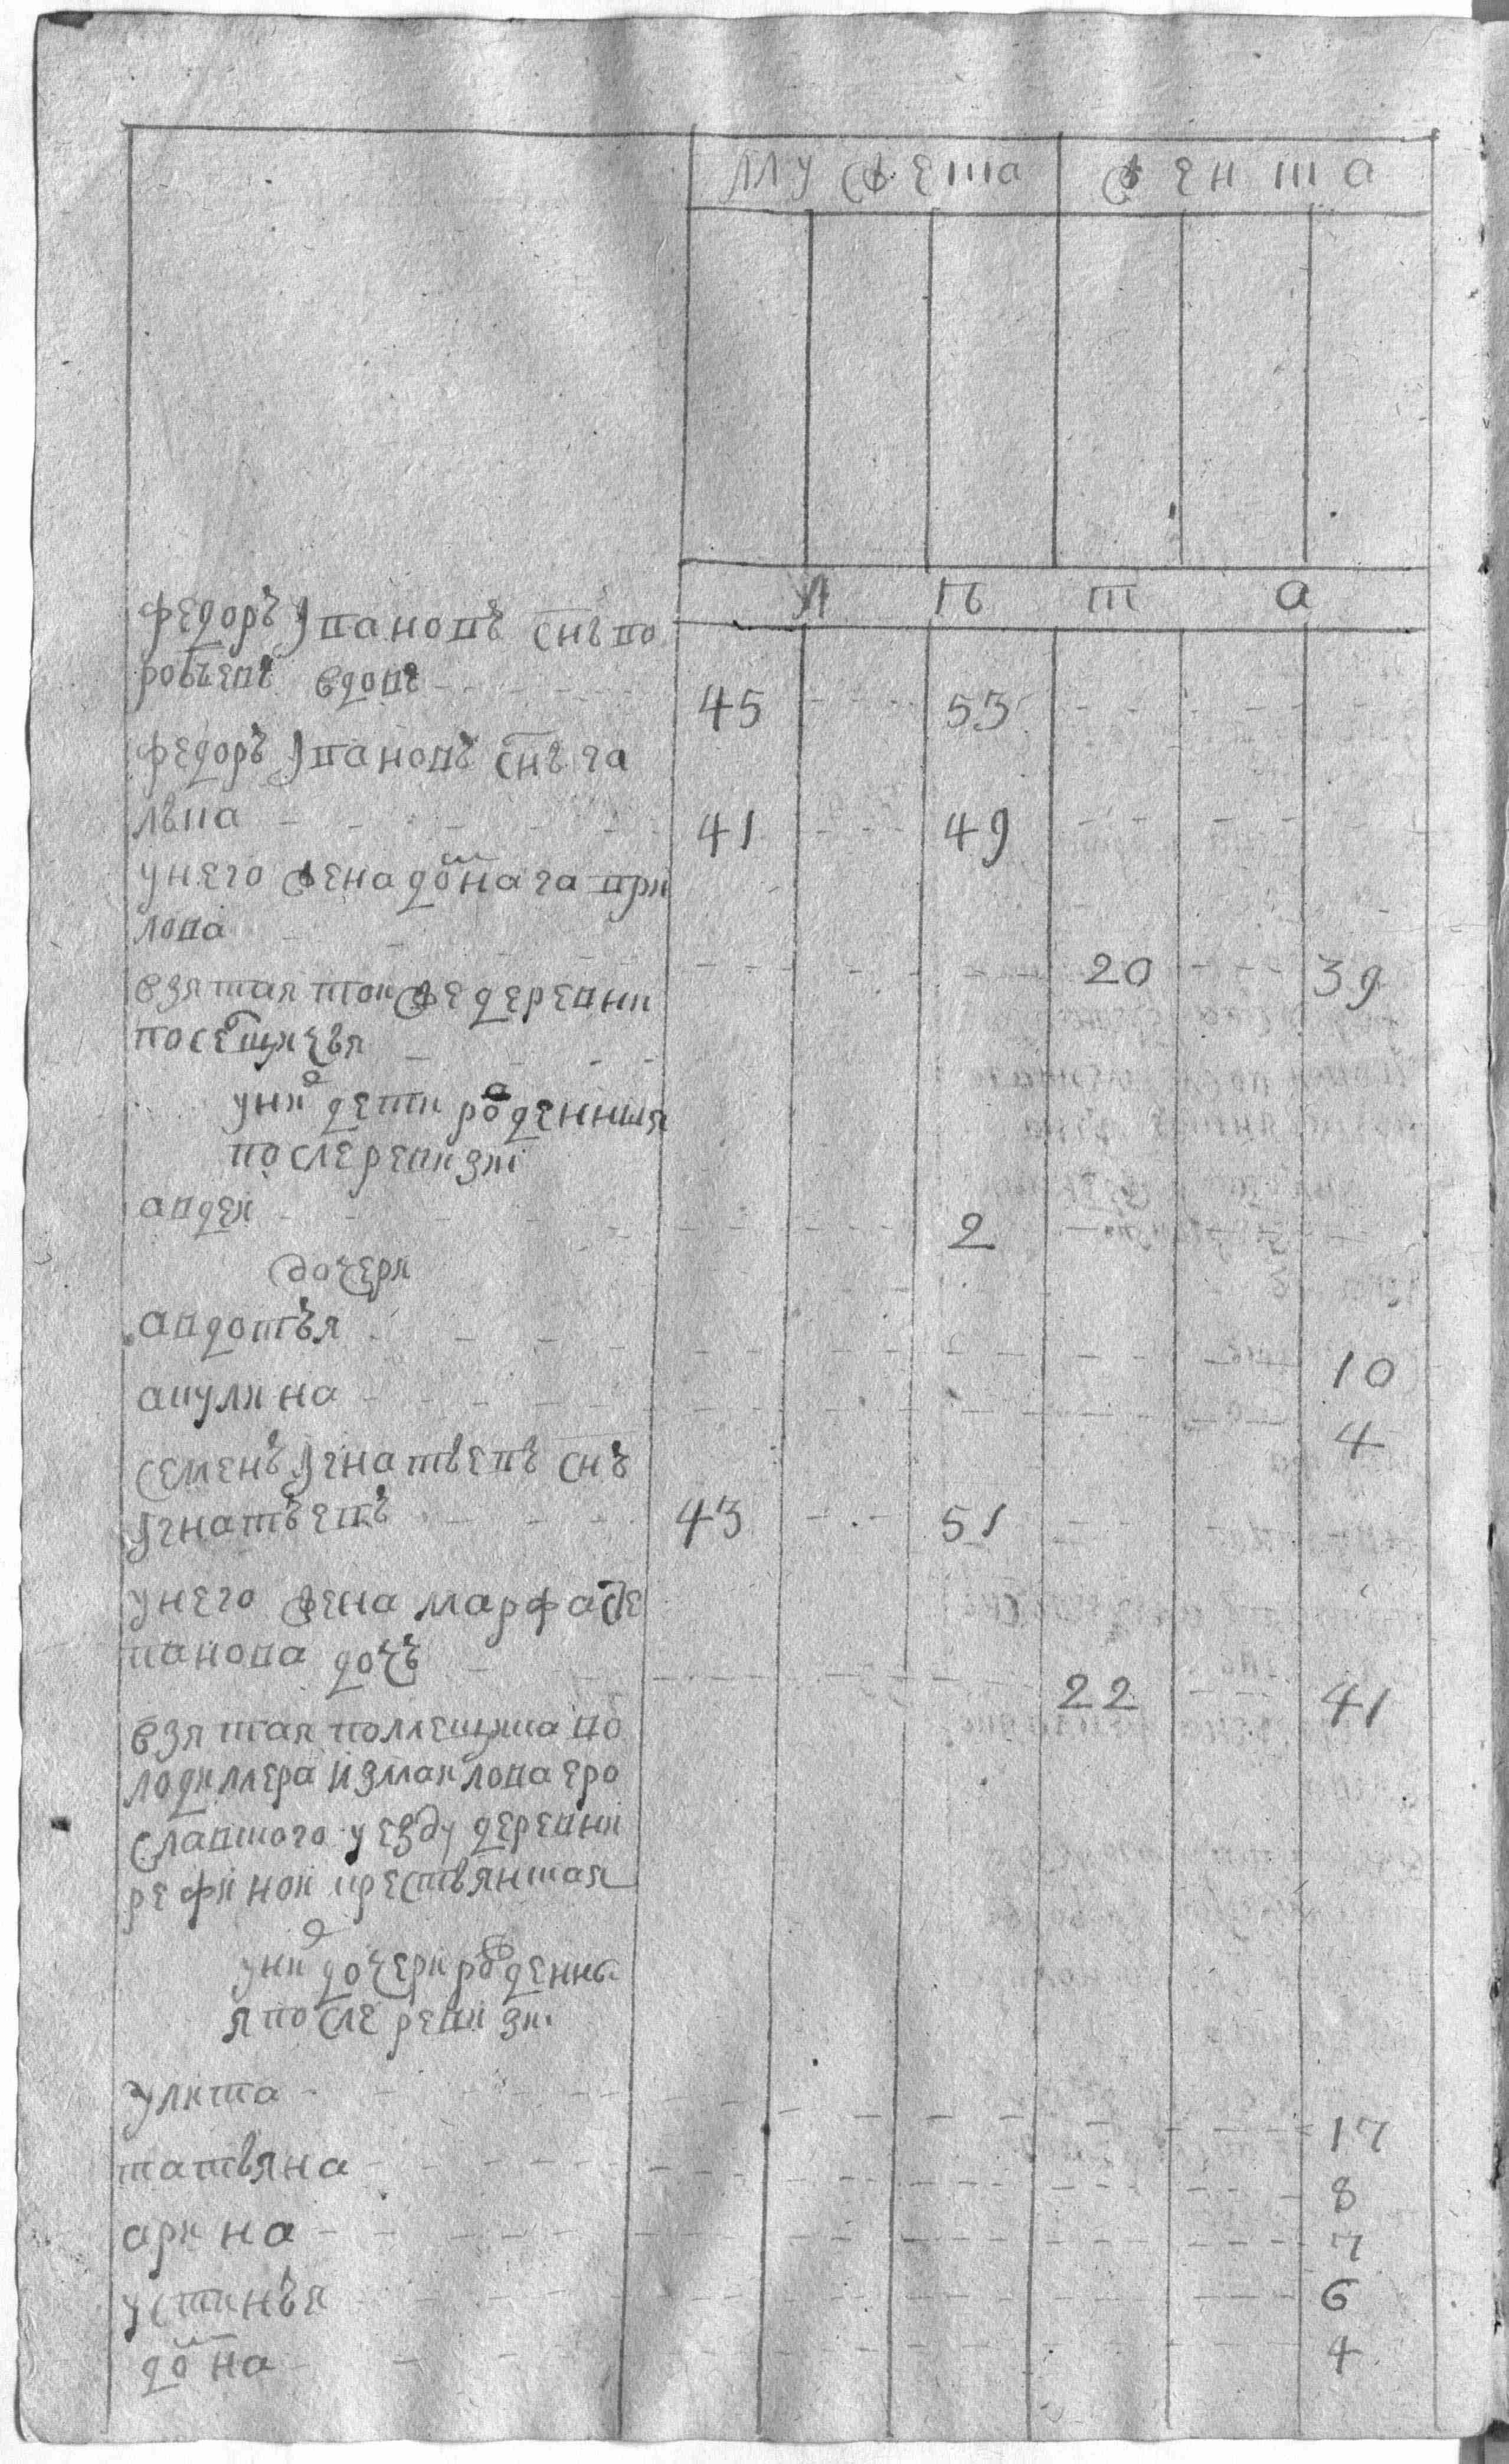 мужеска женска
л ѣ т а
федоръ Iвановъ снъ во
робъевъ вдовъ 45 53
федоръ Iвановъ снъ га
лька 41 49
унего жена дом͡на гаври
лова 20 39
взятая тоиже деревни
уни х дети рожденныя
после ревизиі
авдеи 2
дочери
авдотъя 10
акулина 4
семенъ Iгнатьевъ снъ
Iгнатъевъ 43 51
унего жена марфа сте
панова дочъ 22 41
взятая помещика во
лодимера измаилова еро
славского уезду деревни
рефинои крестьянская
уних дочери рожденны
я после ревизи
улита 17
татьяна 8
арина 7
устинъя 6
домна 4